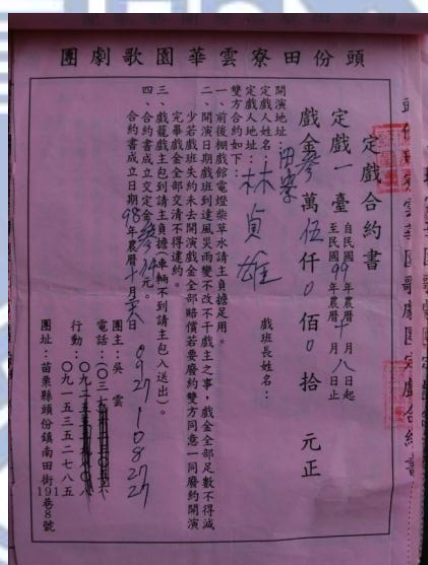 頭份田寮雲華園歌劇團
定戲合約書
定戲一臺 自民國99年農曆十月八日起
至民國99年農曆十月八日止
戲金參萬伍仟0佰0拾 元正
開演地址：田寮
定戲人姓名：林貞雄 戲班長姓名：
定戲人地址：
雙方合約如下：
一、前後棚戲館電燈柴草水請主負擔足用。
二、開演日期戲班到達風災雨變不改不干戲主之事，戲金全部足數不得減
少若戲班失約未去開演戲金全部賠償若要廢約雙方同意一同廢約開演
完畢戲金全部交清不得違約。
三、戲籠戲主包到請主負擔（車輛不到請主包入送出）。
四、合約書成立交定金參仟元。
合約書成立日期98年農曆十月 日
團主：吳 雲 0921108221
電話：
行動：
〇九一五三五二七八五
團址：苗栗縣頭份鎮南田街191巷8號